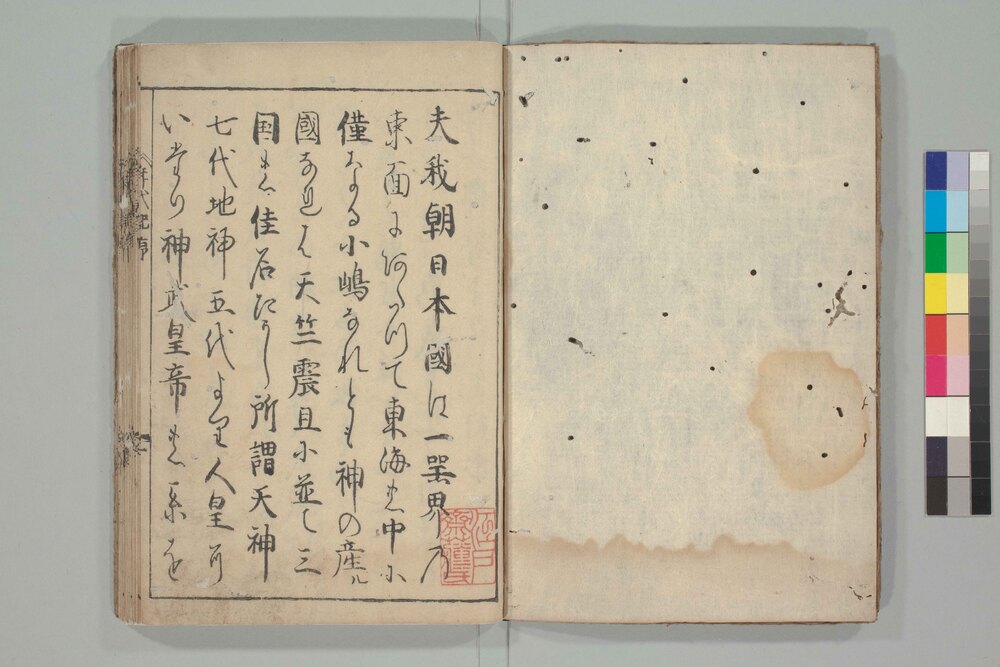 夫我朝日本國は一器界乃
東面にあたつて東海の中に
僅なる小嶋なれとも神の産ル
國なれは天竺震旦に並て三
国の佳名たかし所謂天神
七代地神五代より人皇に
いたり神武皇帝の系を